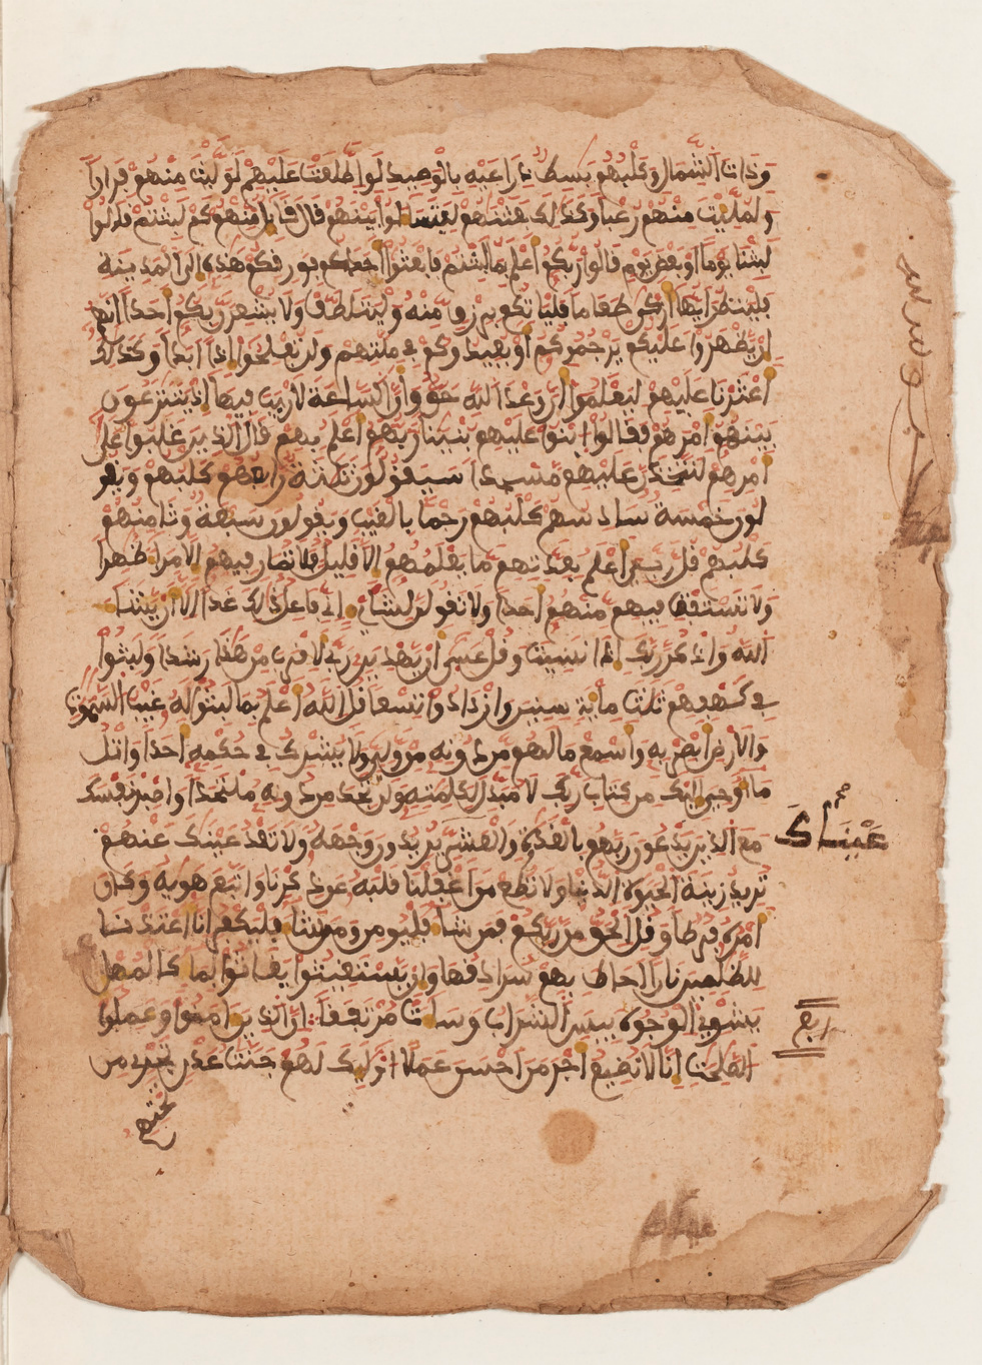 وَذَاتَ الشِّمَالِ وَكَلْبُهُم بَسِطٌ ذِرَاعَيْهِ بِالْوَصِيدِ لَوِ اطَّلَعْتَ عَلَيْهِمْ لَوَلَّيْتَ مِنْهُمْ فِرَارًا
وَلَمُلِّيتَ مِنْهُمْ رُعْبًا وَكَذَلِكَ بَعَثْنَهُمْ لِيَتَسَاءَلُوا بَيْنَهُمْ قَالَ قَايِلٌ مِّنْهُمْ كَمْ لَبِثْتُمْ قَالُوا
لَبِثْنَا يَوْمًا أَوْ بَعْضَ يَوْمٍ قَالُوا رَبُّكُمْ أَعْلَمُ بِمَا لَبِثْتُمْ فَابْعَثُوا أَحَدَكُم بِوَرِقِكُمْ هَذِهِ إِلَى الْمَدِينَةِ
فَلْيَنظُرْ أَيُّهَا أَزْكَى طَعَامًا فَلْيَاتِكُم بِرِزْقٍ مِّنْهُ وَلْيَتَلَطَّفْ وَلَا يُشْعِرَنَّ بِكُمْ أَحَدًا إِنَّهُمْ
إِن يَظْهَرُوا عَلَيْكُمْ يَرْجُمُوكُمْ أَوْ يُعِيدُوكُمْ فِي مِلَّتِهِمْ وَلَن تُفْلِحُوا إِذًا أَبَدًا وَكَذَلِكَ
أَعْثَرْنَا عَلَيْهِمْ لِيَعْلَمُوا أَنَّ وَعْدَ اللَّهِ حَقٌّ وَأَنَّ السَّاعَةَ لَا رَيْبَ فِيهَا إِذْ يَتَنَزَعُونَ
بَيْنَهُمْ أَمْرَهُمْ فَقَالُوا ابْنُوا عَلَيْهِم بُنْيَنًا رَّبُّهُمْ أَعْلَمُ بِهِمْ قَالَ الَّذِينَ غَلَبُوا عَلَى
أَمْرِهِمْ لَنَتَّخِذَنَّ عَلَيْهِم مَّسْجِدًا سَيَقُولُونَ ثَلَثَةٌ رَّابِعُهُمْ كَلْبُهُمْ وَيَقُو
لُونَ خَمْسَةٌ سَادِسُهُمْ كَلْبُهُمْ رَجْمًا بِالْغَيْبِ وَيَقُولُونَ سَبْعَةٌ وَثَامِنُهُمْ
كَلْبُهُمْ قُل رَّبِّي أَعْلَمُ بِعِدَّتِهِم مَّا يَعْلَمُهُمْ إِلَّا قَلِيلٌ فَلَا تُمَارِ فِيهِمْ إِلَّا مِرَاءً ظَهِرًا
وَلَا تَسْتَفْتِ فِيهِم مِّنْهُمْ أَحَدًا وَلَا تَقُولَنَّ لِشَايْءٍ إِنِّي فَاعِلٌ ذَلِكَ غَدًا إِلَّا أَن يَشَاءَ
اللَّهُ وَاذْكُر رَّبَّكَ إِذَا نَسِيتَ وَقُلْ عَسَى أَن يَهْدِيَنِ رَبِّي لِأَقْرَبَ مِنْ هَذَا رَشَدًا وَلَبِثُوا
فِي كَهْفِهِمْ ثَلَثَ مِايَةٍ سِنِينَ وَازْدَادُوا تِسْعًا قُلِ اللَّهُ أَعْلَمُ بِمَا لَبِثُوا لَهُ غَيْبُ السَّمَوَتِ
وَالْأَرْضِ أَبْصِرْ بِهِ وَأَسْمِعْ مَا لَهُم مِّن دُونِهِ مِنْ وَلِيٍّ وَلَا يُشْرِكُ فِي حُكْمِهِ أَحَدًا وَاتْلُ
مَا أُوحِيَ إِلَيْكَ مِن كِتَابِ رَبِّكَ لَا مُبَدِّلَ لِكَلِمَتِهِ وَلَن تَجِدَ مِن دُونِهِ مُلْتَحَدًا وَاصْبِرْ نَفْسَكَ
مَعَ الَّذِينَ يَدْعُونَ رَبَّهُم بِالْغَدَوةِ وَالْعَشِيِّ يُرِيدُونَ وَجْهَهُ وَلَا تَعْدُ عَيْنَكَ عَنْهُمْ
عَيْنَاكَ
تُرِيدُ زِينَةَ الْحَيَوةِ الدُّنْيَا وَلَا تُطِعْ مَنْ أَغْفَلْنَا قَلْبَهُ عَن ذِكْرِنَا وَاتَّبَعَ هَوَيهُ وَكَانَ
أَمْرُهُ فُرُطًا وَقُلِ الْحَقُّ مِن رَّبِّكُمْ فَمَن شَاءَ فَلْيُومِن وَمَن شَاءَ فَلْيَكْفُرْ إِنَّا أَعْتَدْنَا
لِلظَّلِمِينَ نَارًا أَحَاطَ بِهِمْ سُرَادِقُهَا وَإِن يَسْتَغِيثُوا يُغَاثُوا بِمَاءٍ كَالْمُهْلِ
يَشْوِي الْوُجُوهَ بِيسَ الشَّرَابُ وَسَاءَتْ مُرْتَفَقًا إِنَّ الَّذِينَ ءَامَنُوا وَعَمِلُوا
ربع
الصَّلِحَتِ إِنَّا لَا نُضِيعُ أَجْرَ مَنْ أَحْسَنَ عَمَلًا أُوْلَيِكَ لَهُمْ جَنَّتُ عَدْنٍ تَجْرِي مِن
تَحْتِهِم